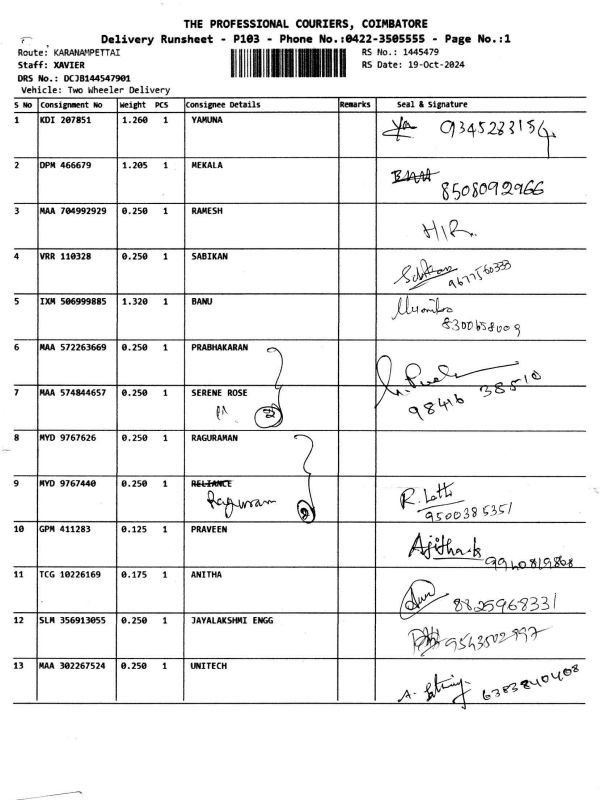 THE PROFESSIONAL COURIERS, COIMBATORE
Delivery Runsheet - P103 - Phone No.:0422-3505555 - Page No.:1
Route: KARANAMPETTAI RS No.: 1445479
Staff: XAVIER RS Date: 19-Oct-2024
DRS No.: DCJB144547901
Vehicle: Two Wheeler Delivery
S No Consignment No Weight PCS Consignee Details Remarks Seal & Signature
1 KDI 207851 1.260 1 YAMUNA 9345283154
2 DPM 466679 1.205 1 MEKALA
8508092966
3 MAA 704992929 0.250 1 RAMESH
H/R.
4 VRR 110328 0.250 1 SABIKAN
9677560333
5 IXM 506999885 1.320 1 BANU
8300658009
6 MAA 572263669 0.250 1 PRABHAKARAN
7 MAA 574844657 0.250 1 SERENE ROSE
98416 38510
2
8 MYD 9767626 0.250 1 RAGURAMAN
9 MYD 9767440 0.250 1 RELIANCE
Raguram
2
9500385351
10 GPM 411283 0.125 1 PRAVEEN
9940819868
11 TCG 10226169 0.175 1 ANITHA
8825968331
12 SLM 356913055 0.250 1 JAYALAKSHMI ENGG
9543502997
13 MAA 302267524 0.250 1 UNITECH
6383840408